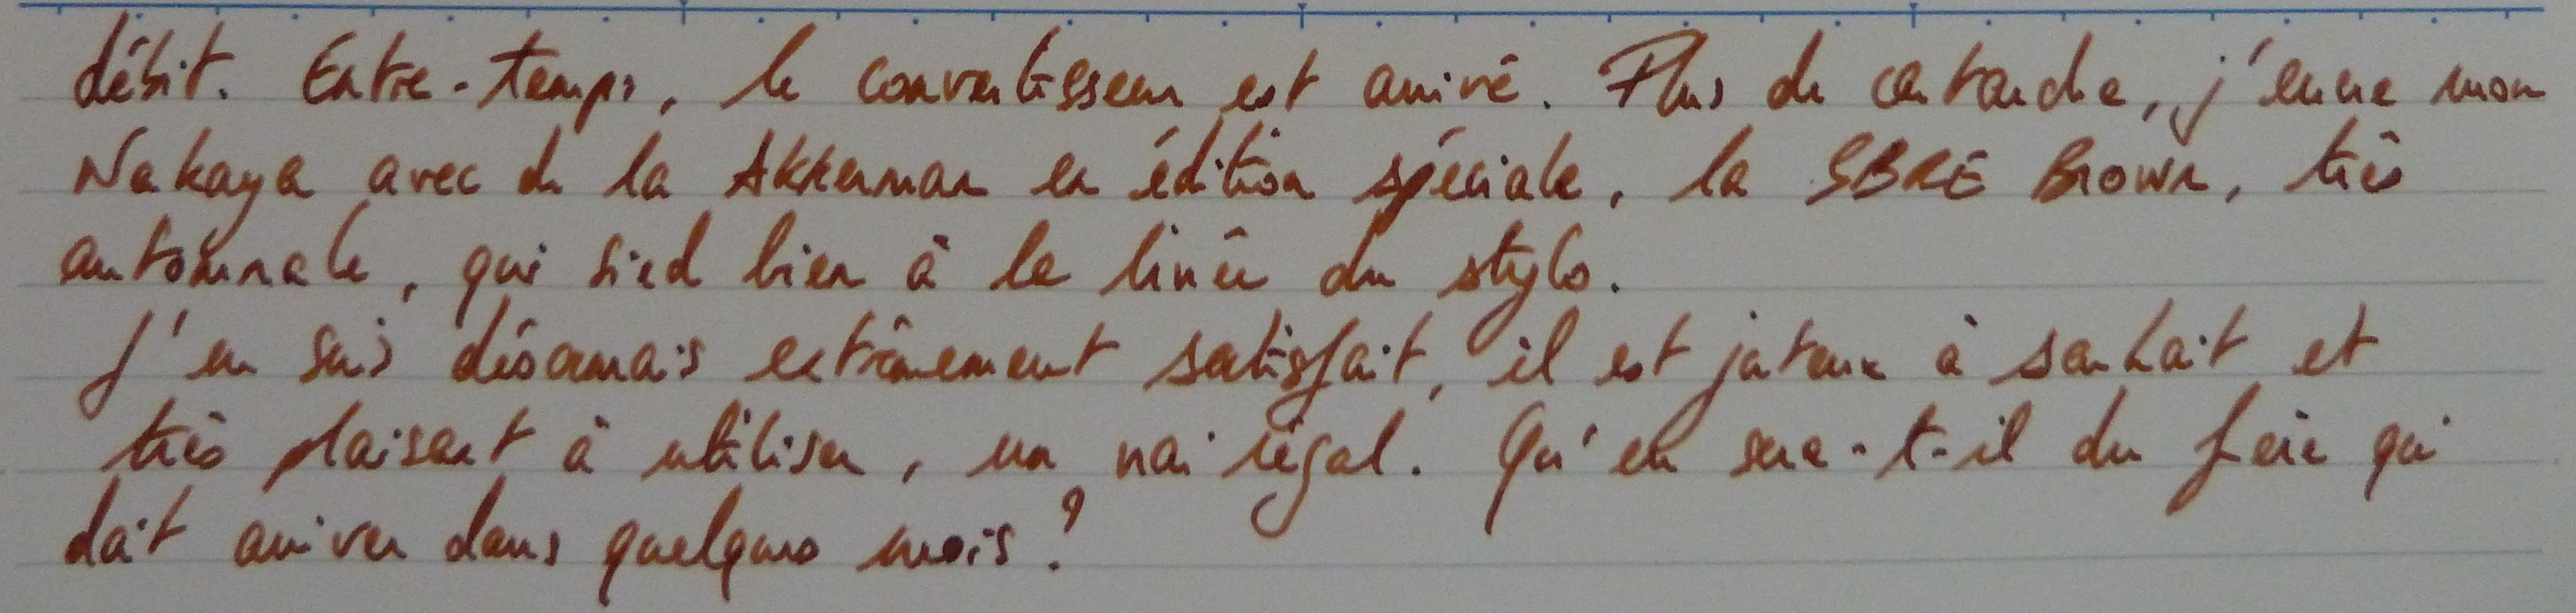 débit. Entre-temps, le convertisseur est arrivé. Plus de cartouche, j'encre mon
Nakaya avec de la Akkerman en édition spéciale, la SBRE Brown, très
automnale, qui sied bien à la livrée du stylo.
J'en suis désormais extrêmement satisfait, il est juteux à souhait et
très plaisant à utiliser, un vrai régal. Qu'en sera-t-il du frère qui
doit arriver dans quelques mois ?